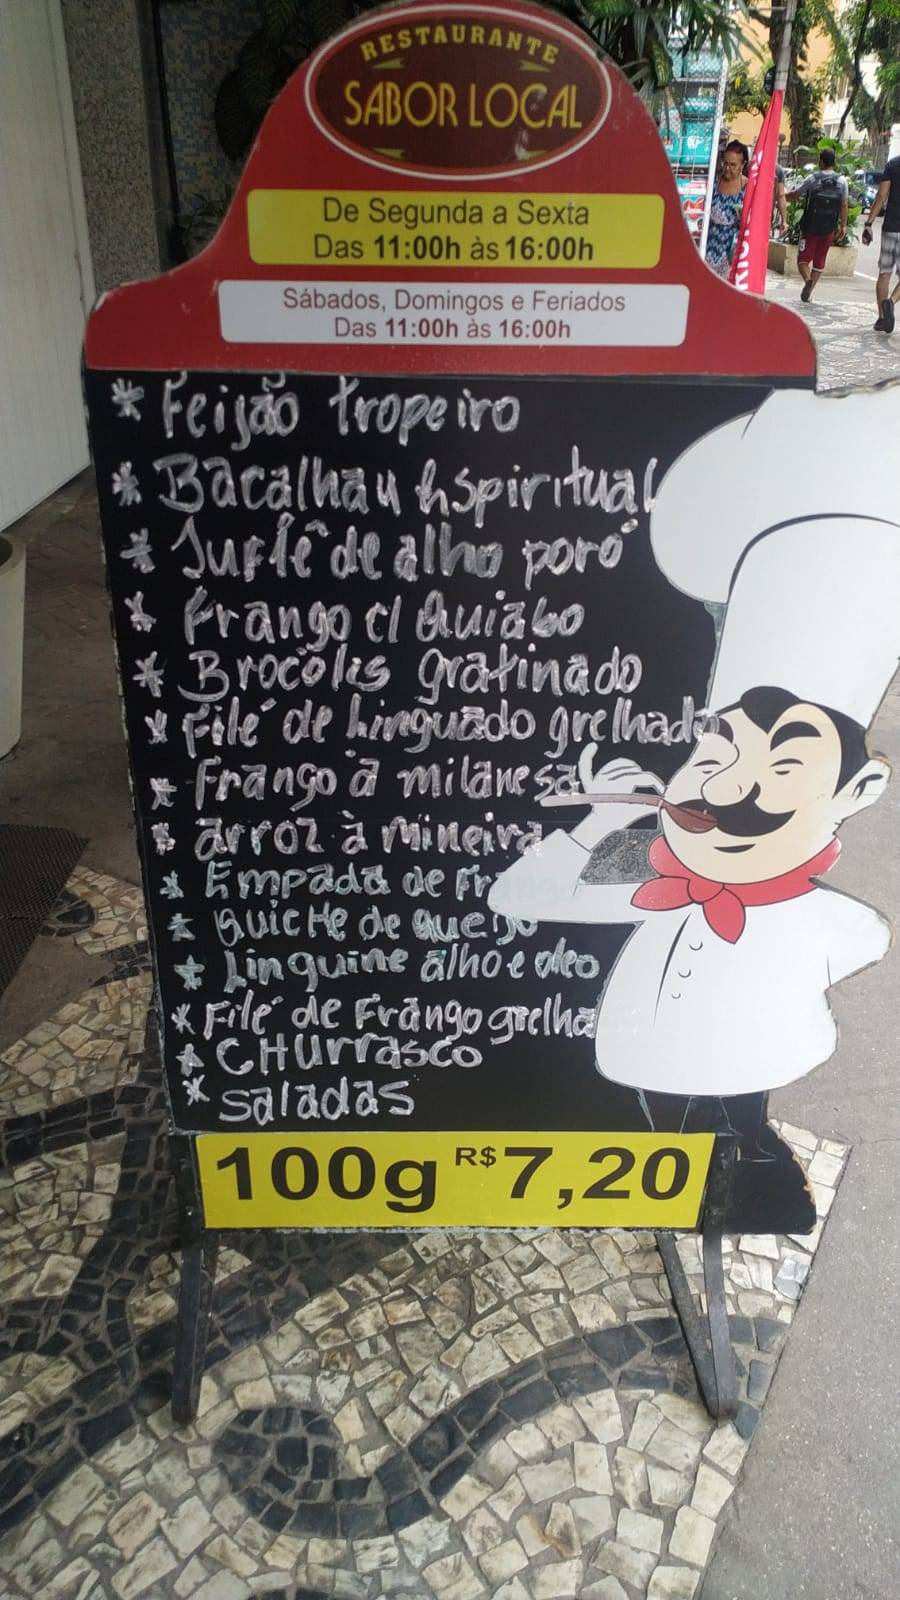 RESTAURANTE
SABOR LOCAL
De Segunda a Sexta
Das 11:00h às 16:00h
Sábados, Domingos e Feriados
Das 11:00h às 16:00h
* Feijão tropeiro
* Bacalhau Espiritual
* Suflê de alho poró
* Frango c/ Quiabo
* Brocolis gratinado
* Filé de Linguado grelhado
* Frango à milanesa
* arroz à Mineira
* Empada de Frango
* Quiche de Queijo
* Linguine alho e oleo
* Filé de Frango grelha
* CHurrasco
* saladas
100g R$ 7,20